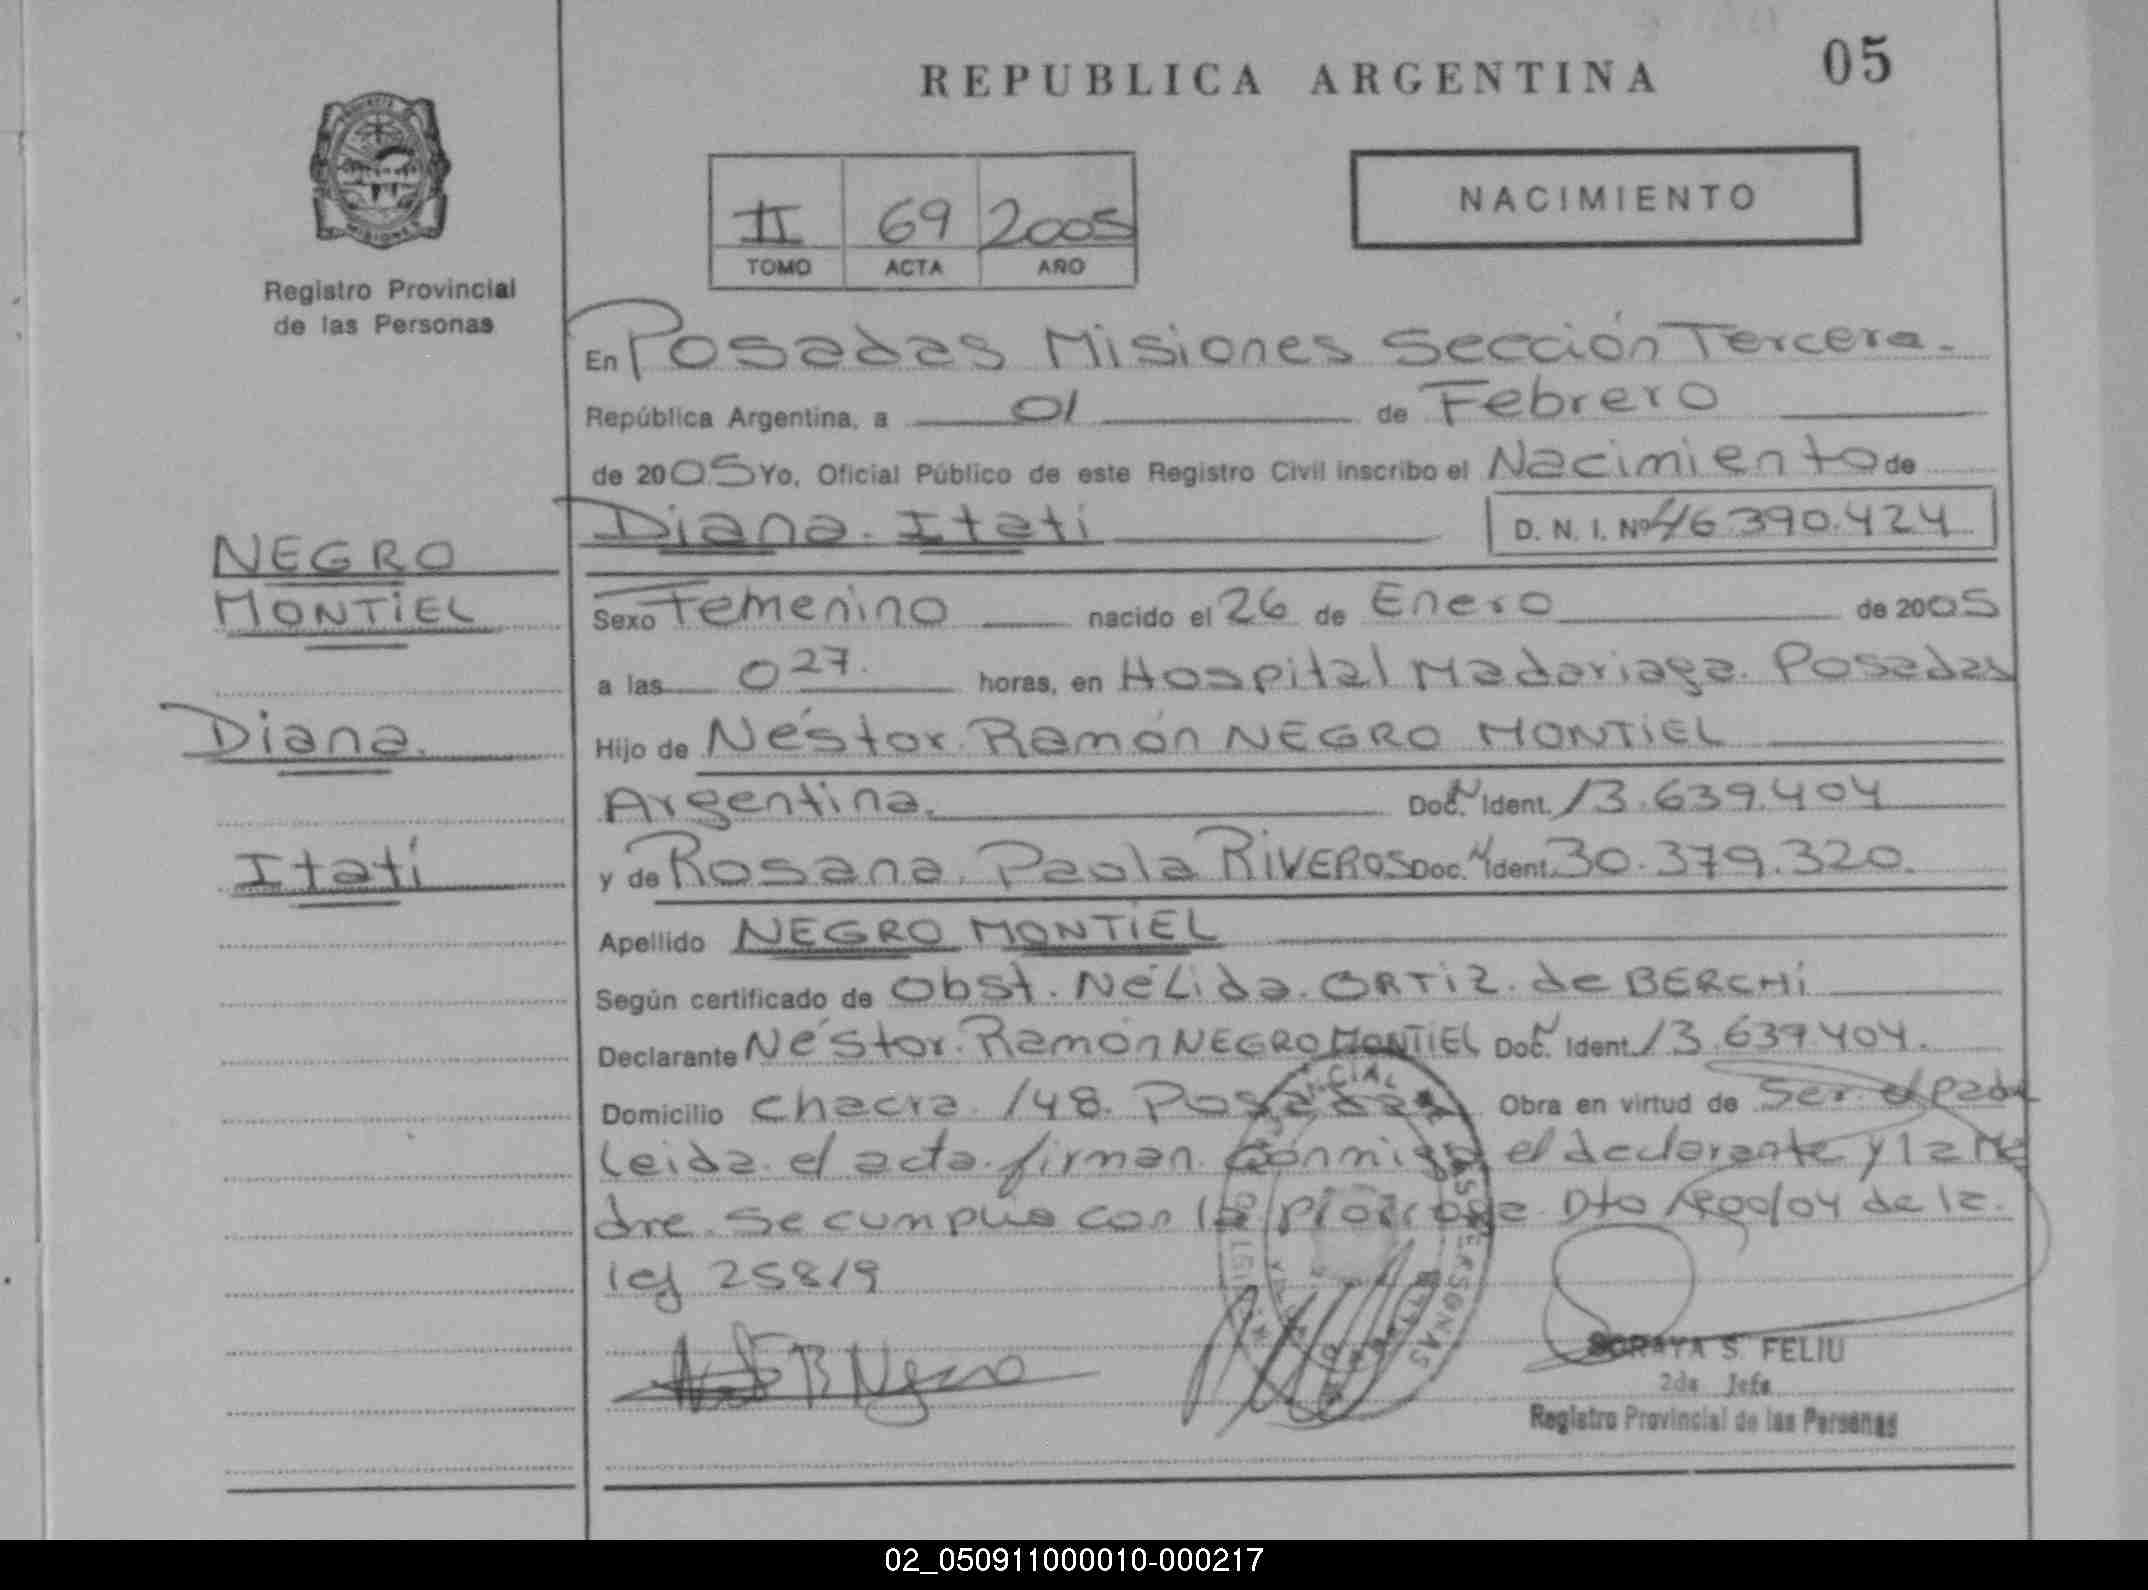 REPUBLICA ARGENTINA
05
II 69 2005
TOMO ACTA AÑO
NACIMIENTO
MISIONES
Registro Provincial
de las Personas
En Posadas Misiones Sección Tercera.
República Argentina, a 01 de Febrero
de 2005 Yo, Oficial Público de este Registro Civil inscribo el Nacimiento de
Diana Itatí D. N. I. Nº 46.390.424
NEGRO
MONTIEL
Diana
Itatí
Sexo Femenino nacido el 26 de Enero de 2005
a las 0 27 horas, en Hospital Madariaga. Posadas
Hijo de Néstor Ramón NEGRO MONTIEL
Argentina. Doc. N Ident. 13.639.404
y de Rosana Paola RIVEROS Doc. N Ident. 30.379.320.
Apellido NEGRO MONTIEL
Según certificado de Obst. Nélida ORTIZ de BERCHI
Declarante Néstor Ramón NEGRO MONTIEL Doc. N Ident. 13.639.404.
Domicilio Chacra 148. Posadas Obra en virtud de Ser el padre
Leida el acta firman conmigo el declarante y la Ma
dre. Se cumplio con la Dto de la
ley 25819
Negro
SORAYA S. FELIU
2da Jefa
Registro Provincial de las Personas
02_050911000010-000217